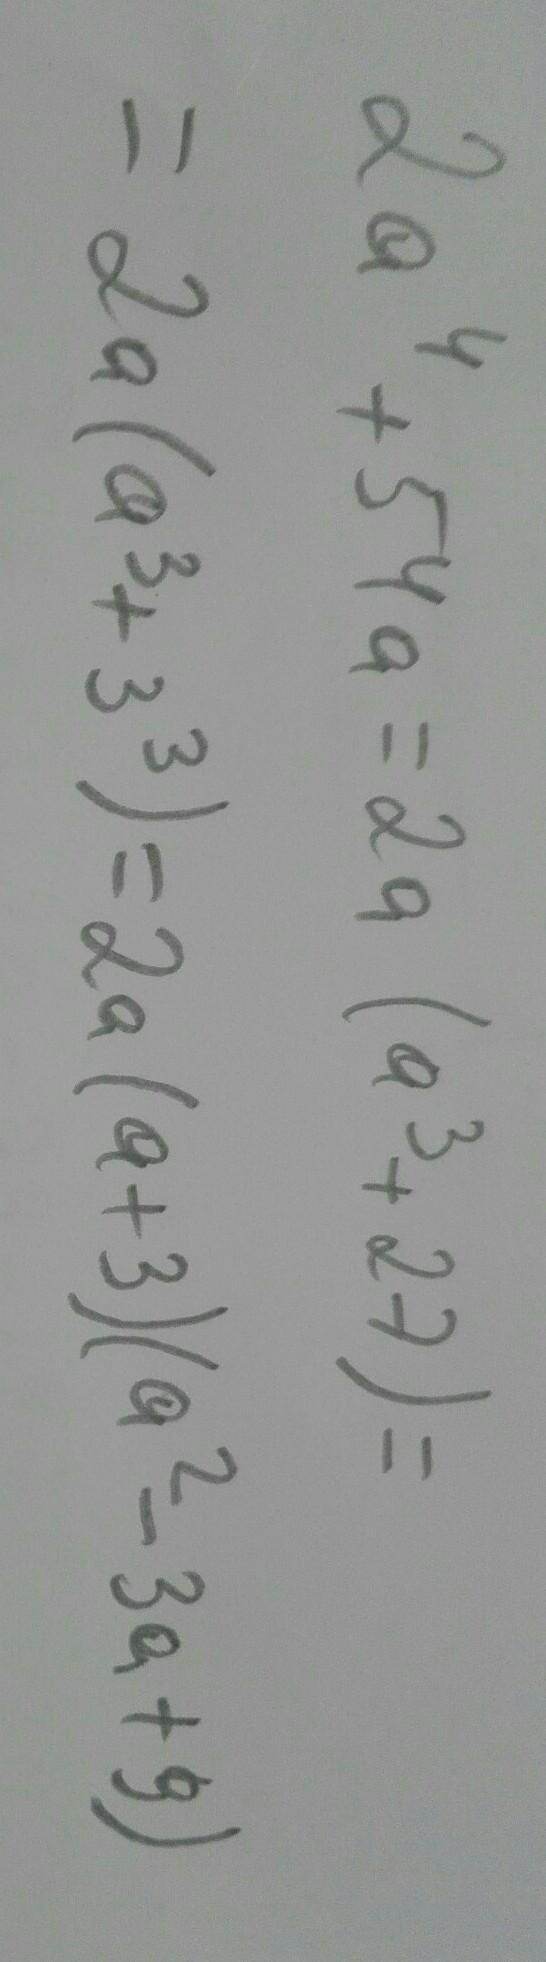 2a⁴+54a=2a(a³+27)=
=2a(a³+3³)=2a(a+3)(a²-3a+9)